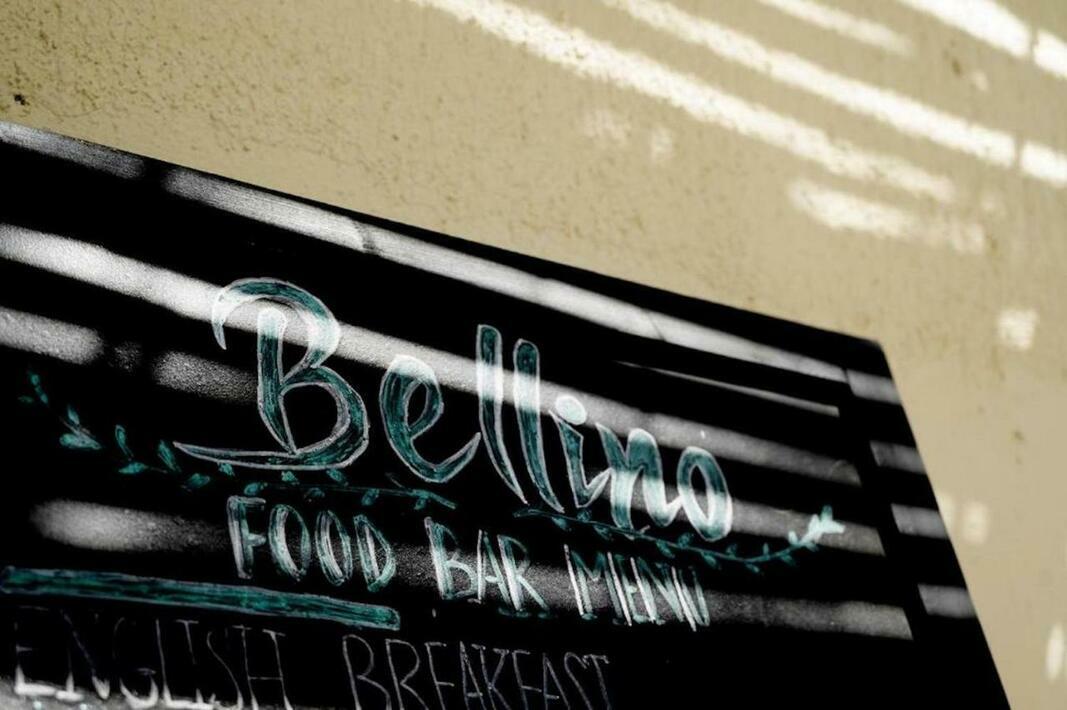 Bellino
FOOD BAR MENU
ENGLISH BREAKFAST